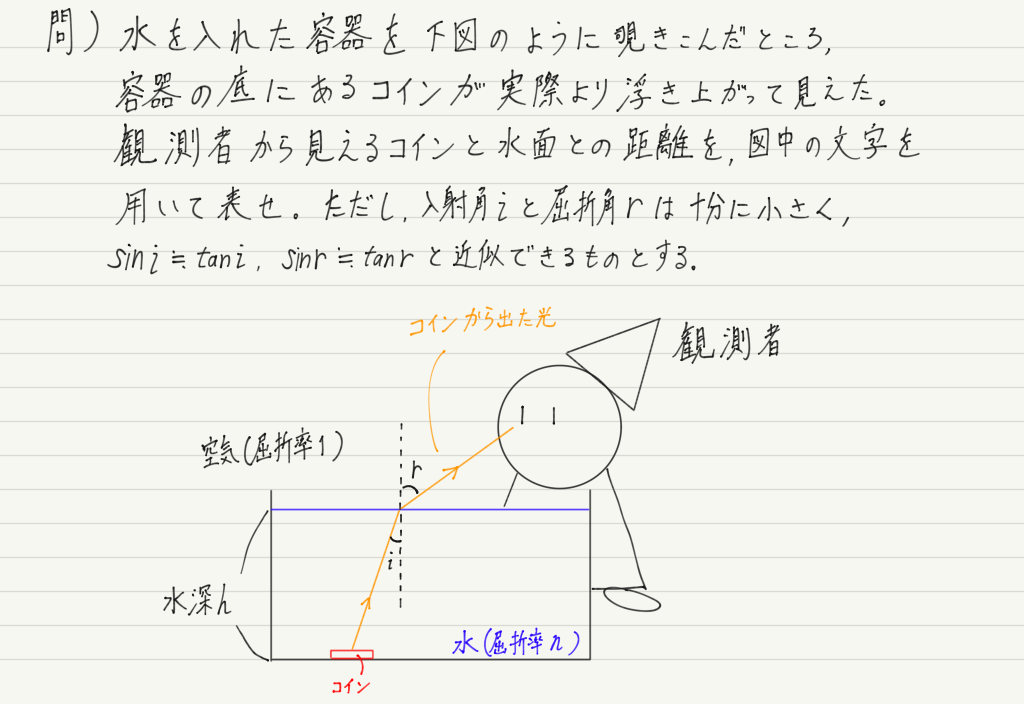 問) 水を入れた容器を下図のように覗きこんだところ,
容器の底にあるコインが実際より浮き上がって見えた。
観測者から見えるコインと水面との距離を, 図中の文字を
用いて表せ。ただし, 入射角iと屈折角rは十分に小さく,
sini≒tani, sinr≒tanrと近似できるものとする.
コインから出た光
観測者
空気(屈折率1)
r
i
水深h
水(屈折率n)
コイン